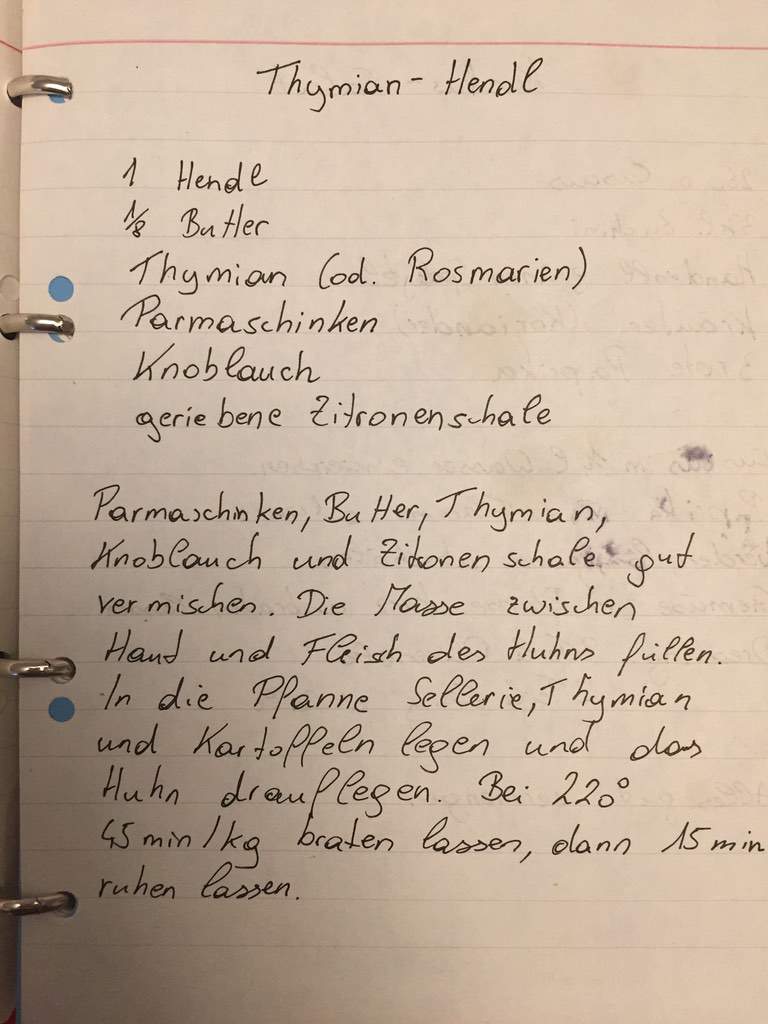 Thymian - Hendl
1 Hendl
1/8 Butter
Thymian (od. Rosmarien)
Parmaschinken
Knoblauch
geriebene Zitronenschale
Parmaschinken, Butter, Thymian,
Knoblauch und Zitronenschale gut
vermischen. Die Masse zwischen
Haut und Fleisch des Huhns füllen.
In die Pfanne Sellerie, Thymian
und Kartoffeln legen und das
Huhn drauflegen. Bei 220°
45min/kg braten lassen, dann 15min
ruhen lassen.